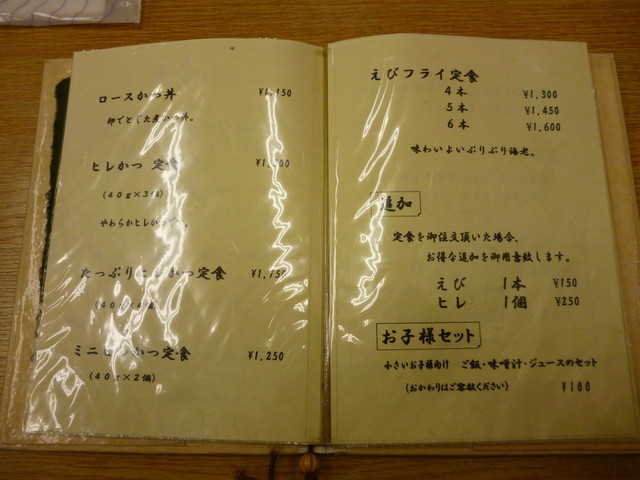 ロースかつ丼 ¥1,150
卵でとじた煮かつ丼。
ヒレかつ 定食
(40g×3個)
やわらかヒレか
たっぷりヒレかつ定食 ¥1,750
(40g×4個)
ミニヒレかつ定食 ¥1,250
(40g×2個)
えびフライ定食
4本 ¥1,300
5本 ¥1,450
6本 ¥1,600
味わいよいぷりぷり海老。
追加
定食を御注文頂いた場合、
お得な追加を御用意致します。
えび 1本 ¥150
ヒレ 1個 ¥250
お子様セット
小さいお子様向け ご飯・味噌汁・ジュースのセット
(おかわりはご容赦ください) ¥100